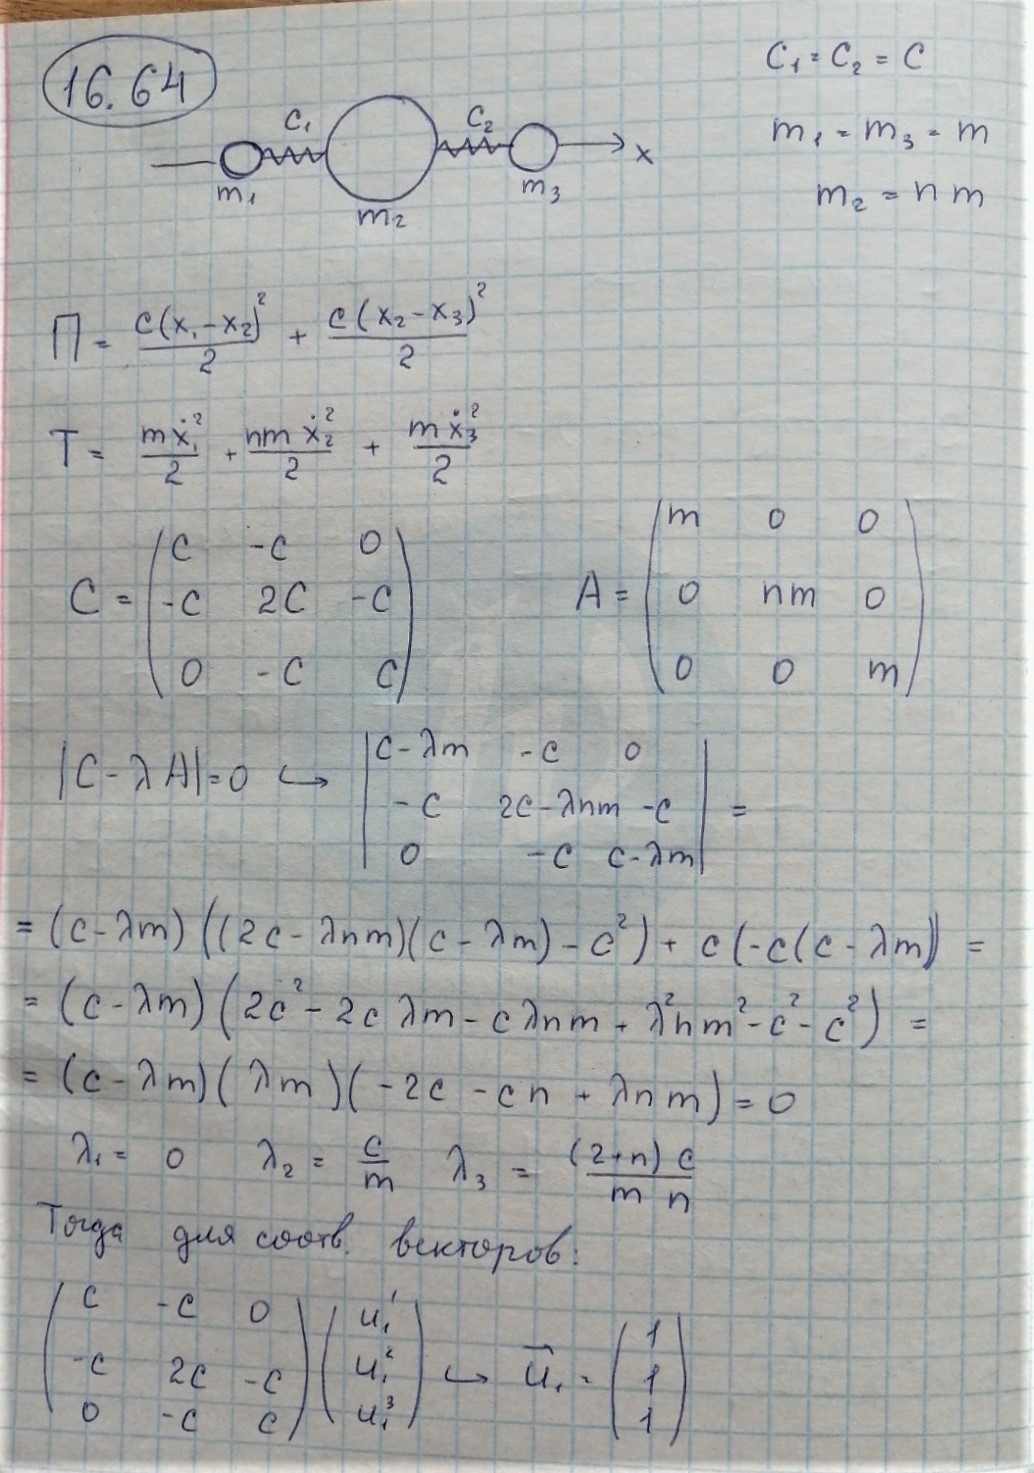 16.64
C₁ = C₂ = C
m₁ = m₃ = m
m₂ = n m
C₁ C₂ x
m₁ m₂ m₃
П = c(x₁-x₂)²/2 + c(x₂-x₃)²/2
T = mẋ₁²/2 + nmẋ₂²/2 + mẋ₃²/2
C = (c -c 0; -c 2c -c; 0 -c c) A = (m 0 0; 0 nm 0; 0 0 m)
|C - λA| = 0 ↪ |c-λm -c 0; -c 2c-λnm -c; 0 -c c-λm| =
= (c-λm)((2c-λnm)(c-λm)-c²) + c(-c(c-λm)) =
= (c-λm)(2c²-2cλm-cλnm+λ²nm²-c²-c²) =
= (c-λm)(λm)(-2c-cn+λnm) = 0
λ₁ = 0 λ₂ = c/m λ₃ = (2+n)c/mn
Тогда для соотв. векторов:
(c -c 0; -c 2c -c; 0 -c c)(u₁¹; u₁²; u₁³) ↪ u⃗₁ = (1; 1; 1)